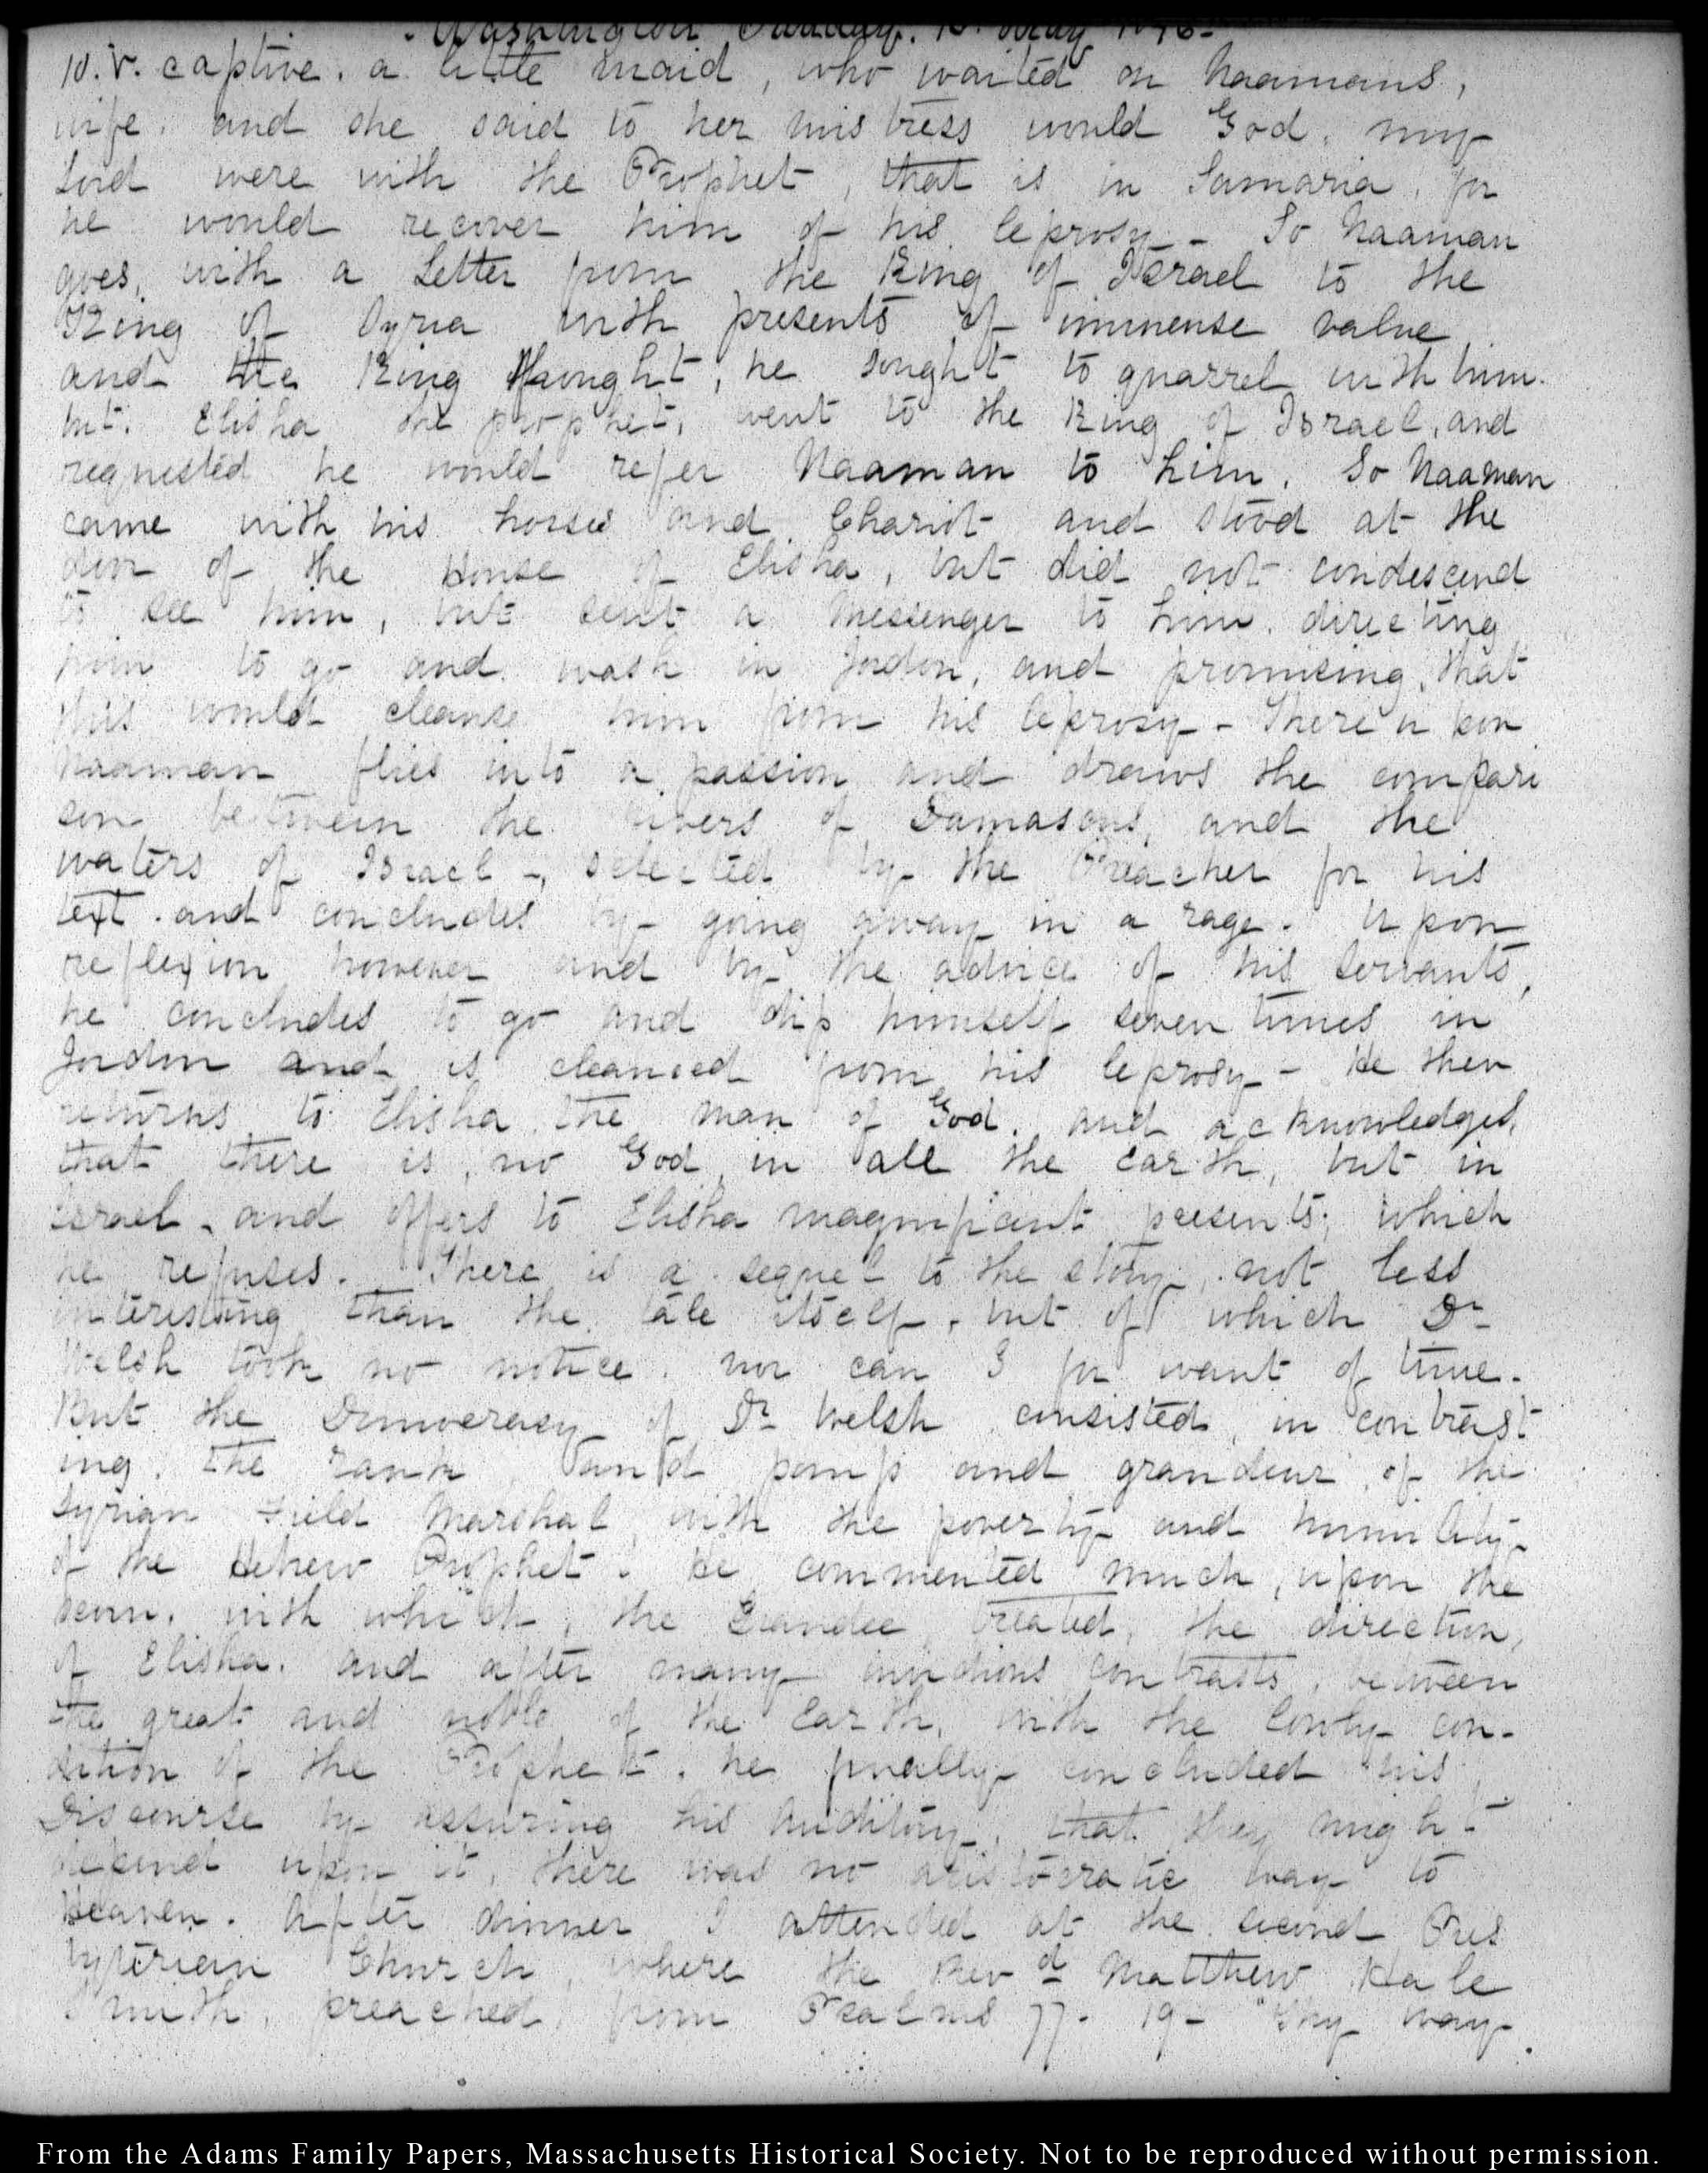 Washington Sunday. 10. May 1846-
10. V. captive. a little maid, who waited on Naamans,
wife. and she said to her mistress would God. my
Lord were with the Prophet, that is in Samaria. for
he would recover him of his leprosy - So Naaman
goes, with a Letter from the King of Israel to the
King of Syria with presents of immense value
and the King thought, he sought to quarrel with him.
but. Elisha the prophet, went to the King of Israel, and
requested he would refer Naaman to him. So Naaman
came with his horses and Chariot and stood at the
door of the House of Elisha, but did not condescend
to see him, but sent a Messenger to him. directing
him to go and wash in Jordon, and promising, that
this would cleanse him from his leprosy - Thereupon
Naaman flies into a passion and draws the compari
son between the rivers of Damascus, and the
waters of Israel -, selected by the Preacher for his
text. and concludes by going away in a rage. Upon
reflexion however and by the advice of his servants,
he concludes to go and dip himself seven times in
Jordon and is cleansed from his leprosy - He then
returns to Elisha the man of God. and acknowledges,
that there is, no God in all the Earth, but in
Israel. and offers to Elisha magnificent presents; which
he refuses. There is a sequel to the story, not less
interesting than the tale itself, but of which Dr
Welsh took no notice. nor can I for want of time.
But the Democracy of Dr Welsh consisted in contrast
ing. the rank and pomp and grandeur of the
Syrian Field Marshal with the poverty and humility
of the Hebrew Prophet. He commented much, upon the
scorn. with which, the Grandee treated, the direction,
of Elisha. and after many invidious contrasts, between
the great and noble of the Earth, with the lowly con-
dition of the Prophet. he finally concluded his
Discourse by assuring his Auditory. that they might
depend upon it, there was no aristocratic way to
Heaven. After dinner I attended at the second Pres
byterian Church, where the Revd Matthew Hale
Smith, preached, from Psalms 77. 19 - "Thy way
From the Adams Family Papers, Massachusetts Historical Society. Not to be reproduced without permission.